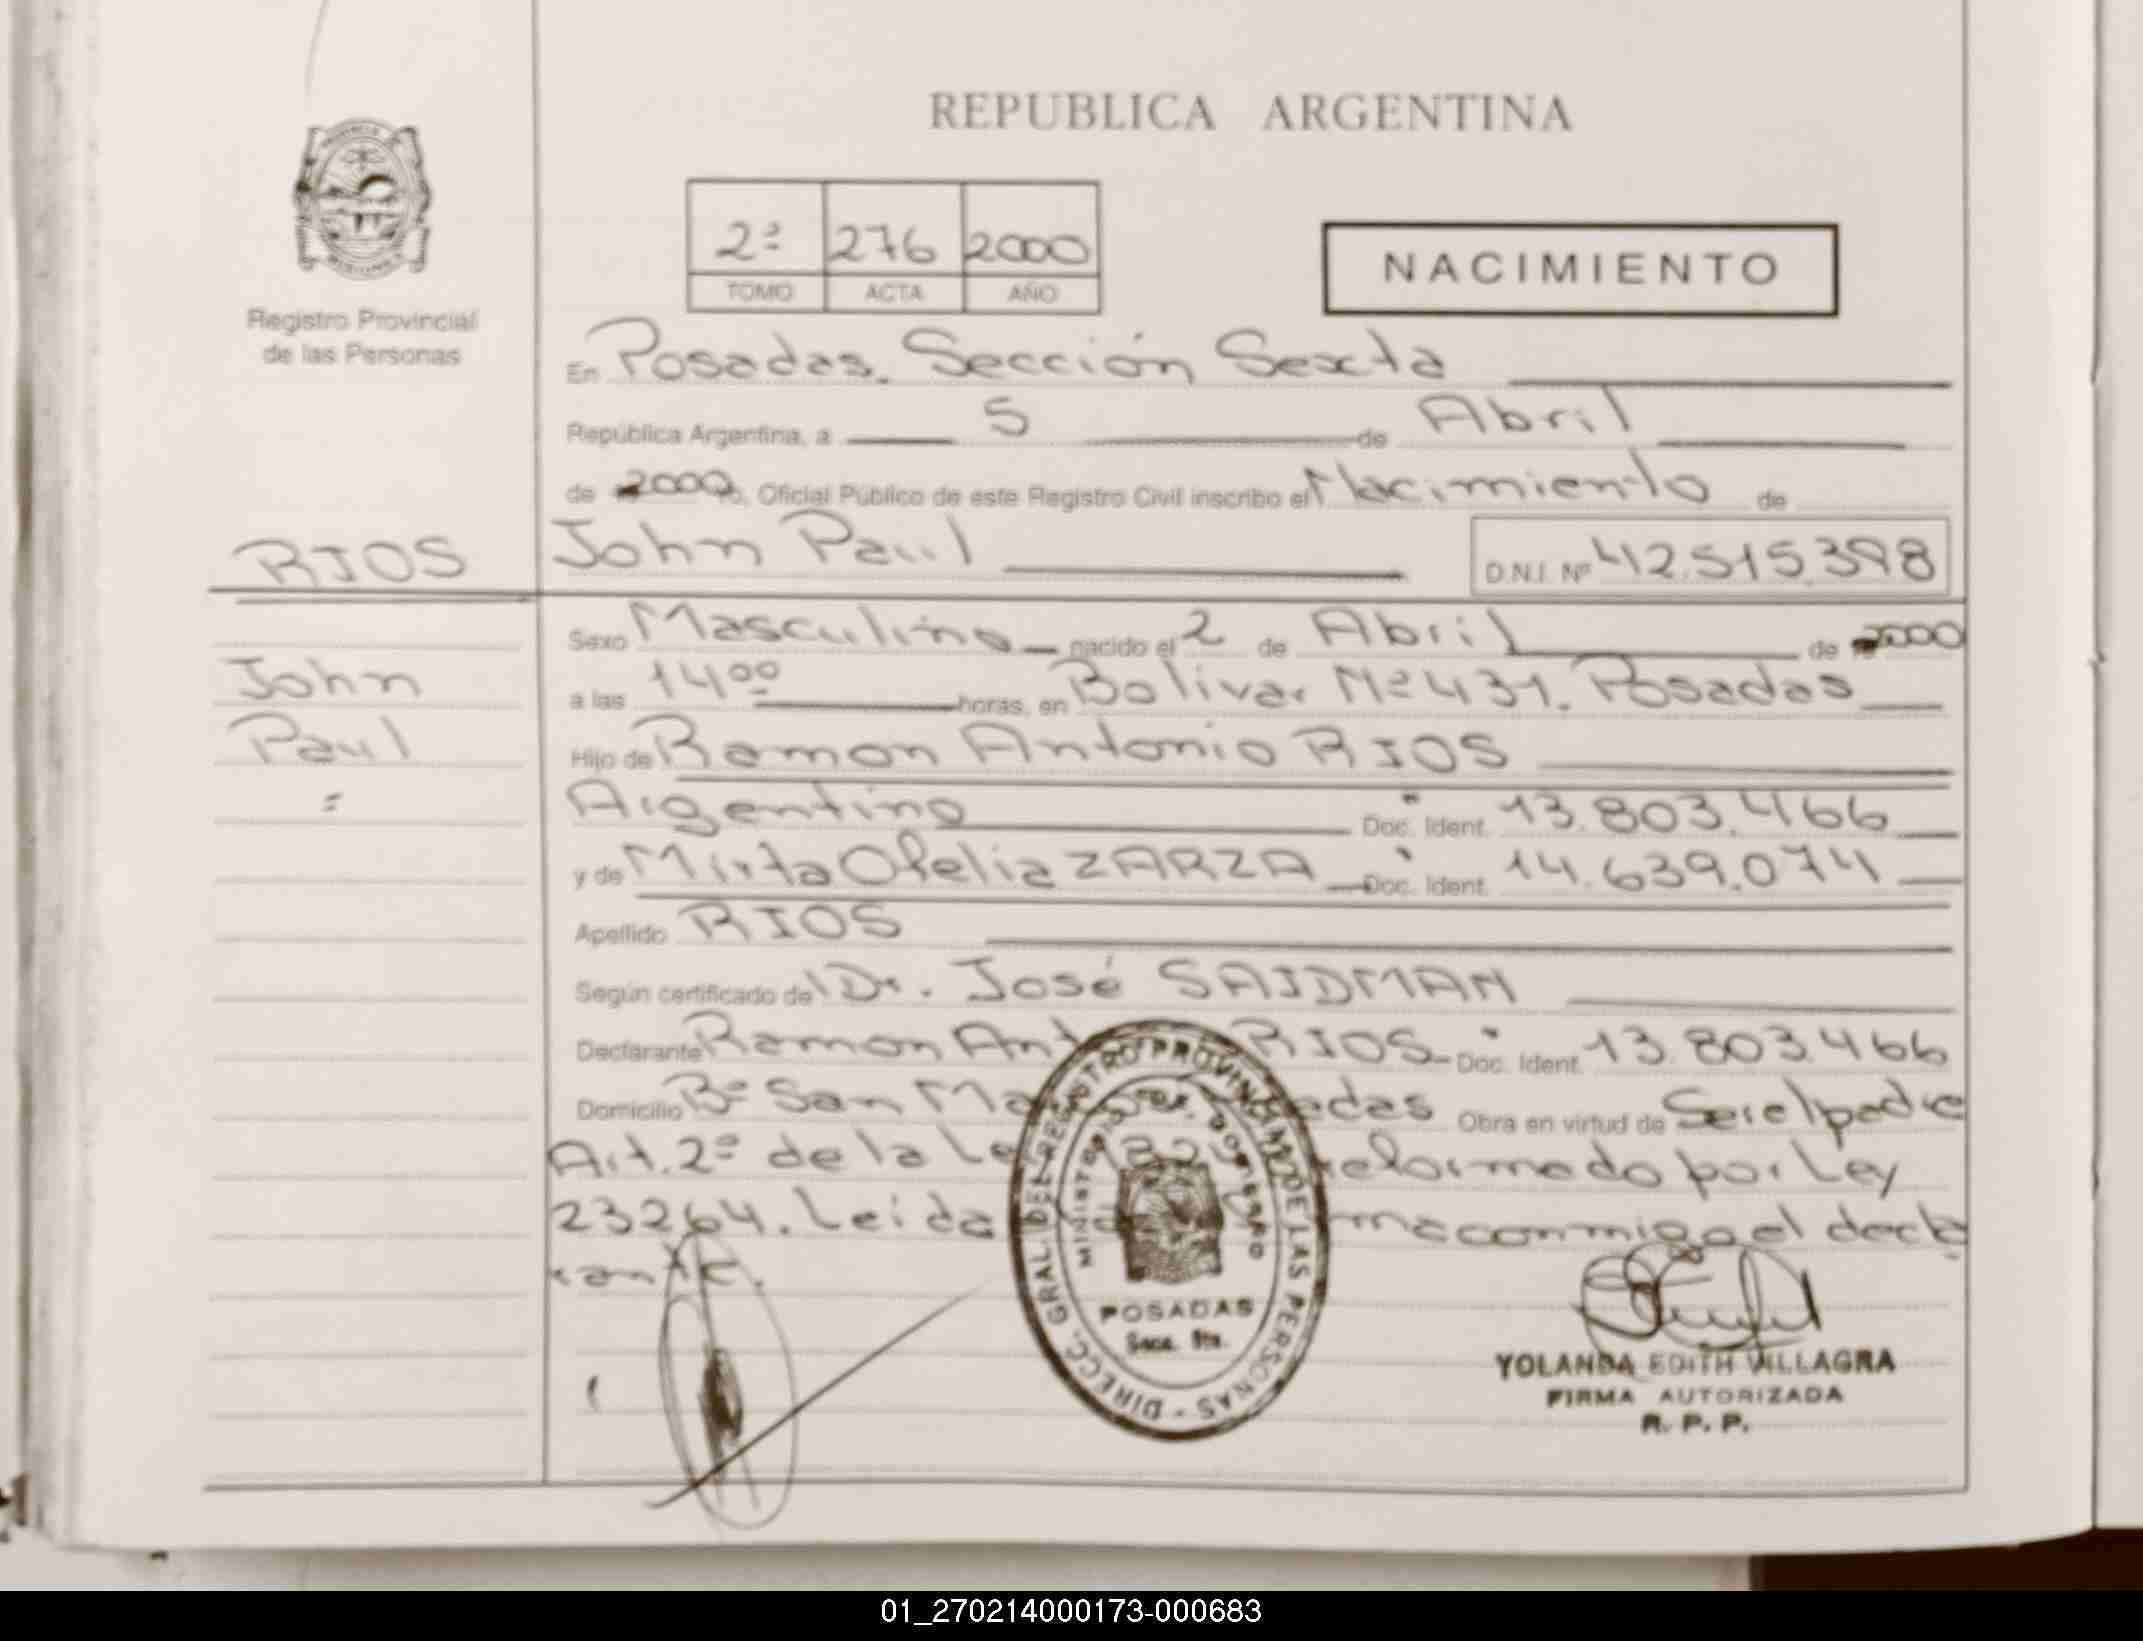 REPUBLICA ARGENTINA
2ª 276 2000
TOMO ACTA AÑO
NACIMIENTO
Registro Provincial
de las Personas
En Posadas. Sección Sexta
República Argentina, a 5 de Abril
de 2000, Oficial Público de este Registro Civil inscribo el Nacimiento de
RIOS John Paul D.N.I. Nº 42.515.398
Sexo Masculino nacido el 2 de Abril de 2000
John
a las 14⁰⁰ horas, en Bolivar Nº 431. Posadas
Paul
Hijo de Ramon Antonio RIOS
=
Argentino Doc. Ident. 13.803.466
y de Mirta Ofelia ZARZA Doc. Ident. 14.639.074
Apellido RIOS
Según certificado de Dr. José SAIDMAN
Declarante Ramon Ant RIOS Doc. Ident. 13.803.466
Domicilio Bº San Ma adas Obra en virtud de Ser el padre
Art. 2º de la Le reformado por Ley
23264. Leida ma conmigo el decla
rante.
DIRECC. GRAL. DEL REGISTRO PROVINCIAL DE LAS PERSONAS
MINISTERIO DE GOBIERNO
POSADAS
Secc. 6ta.
YOLANDA EDITH VILLAGRA
FIRMA AUTORIZADA
R. P. P.
01_270214000173-000683